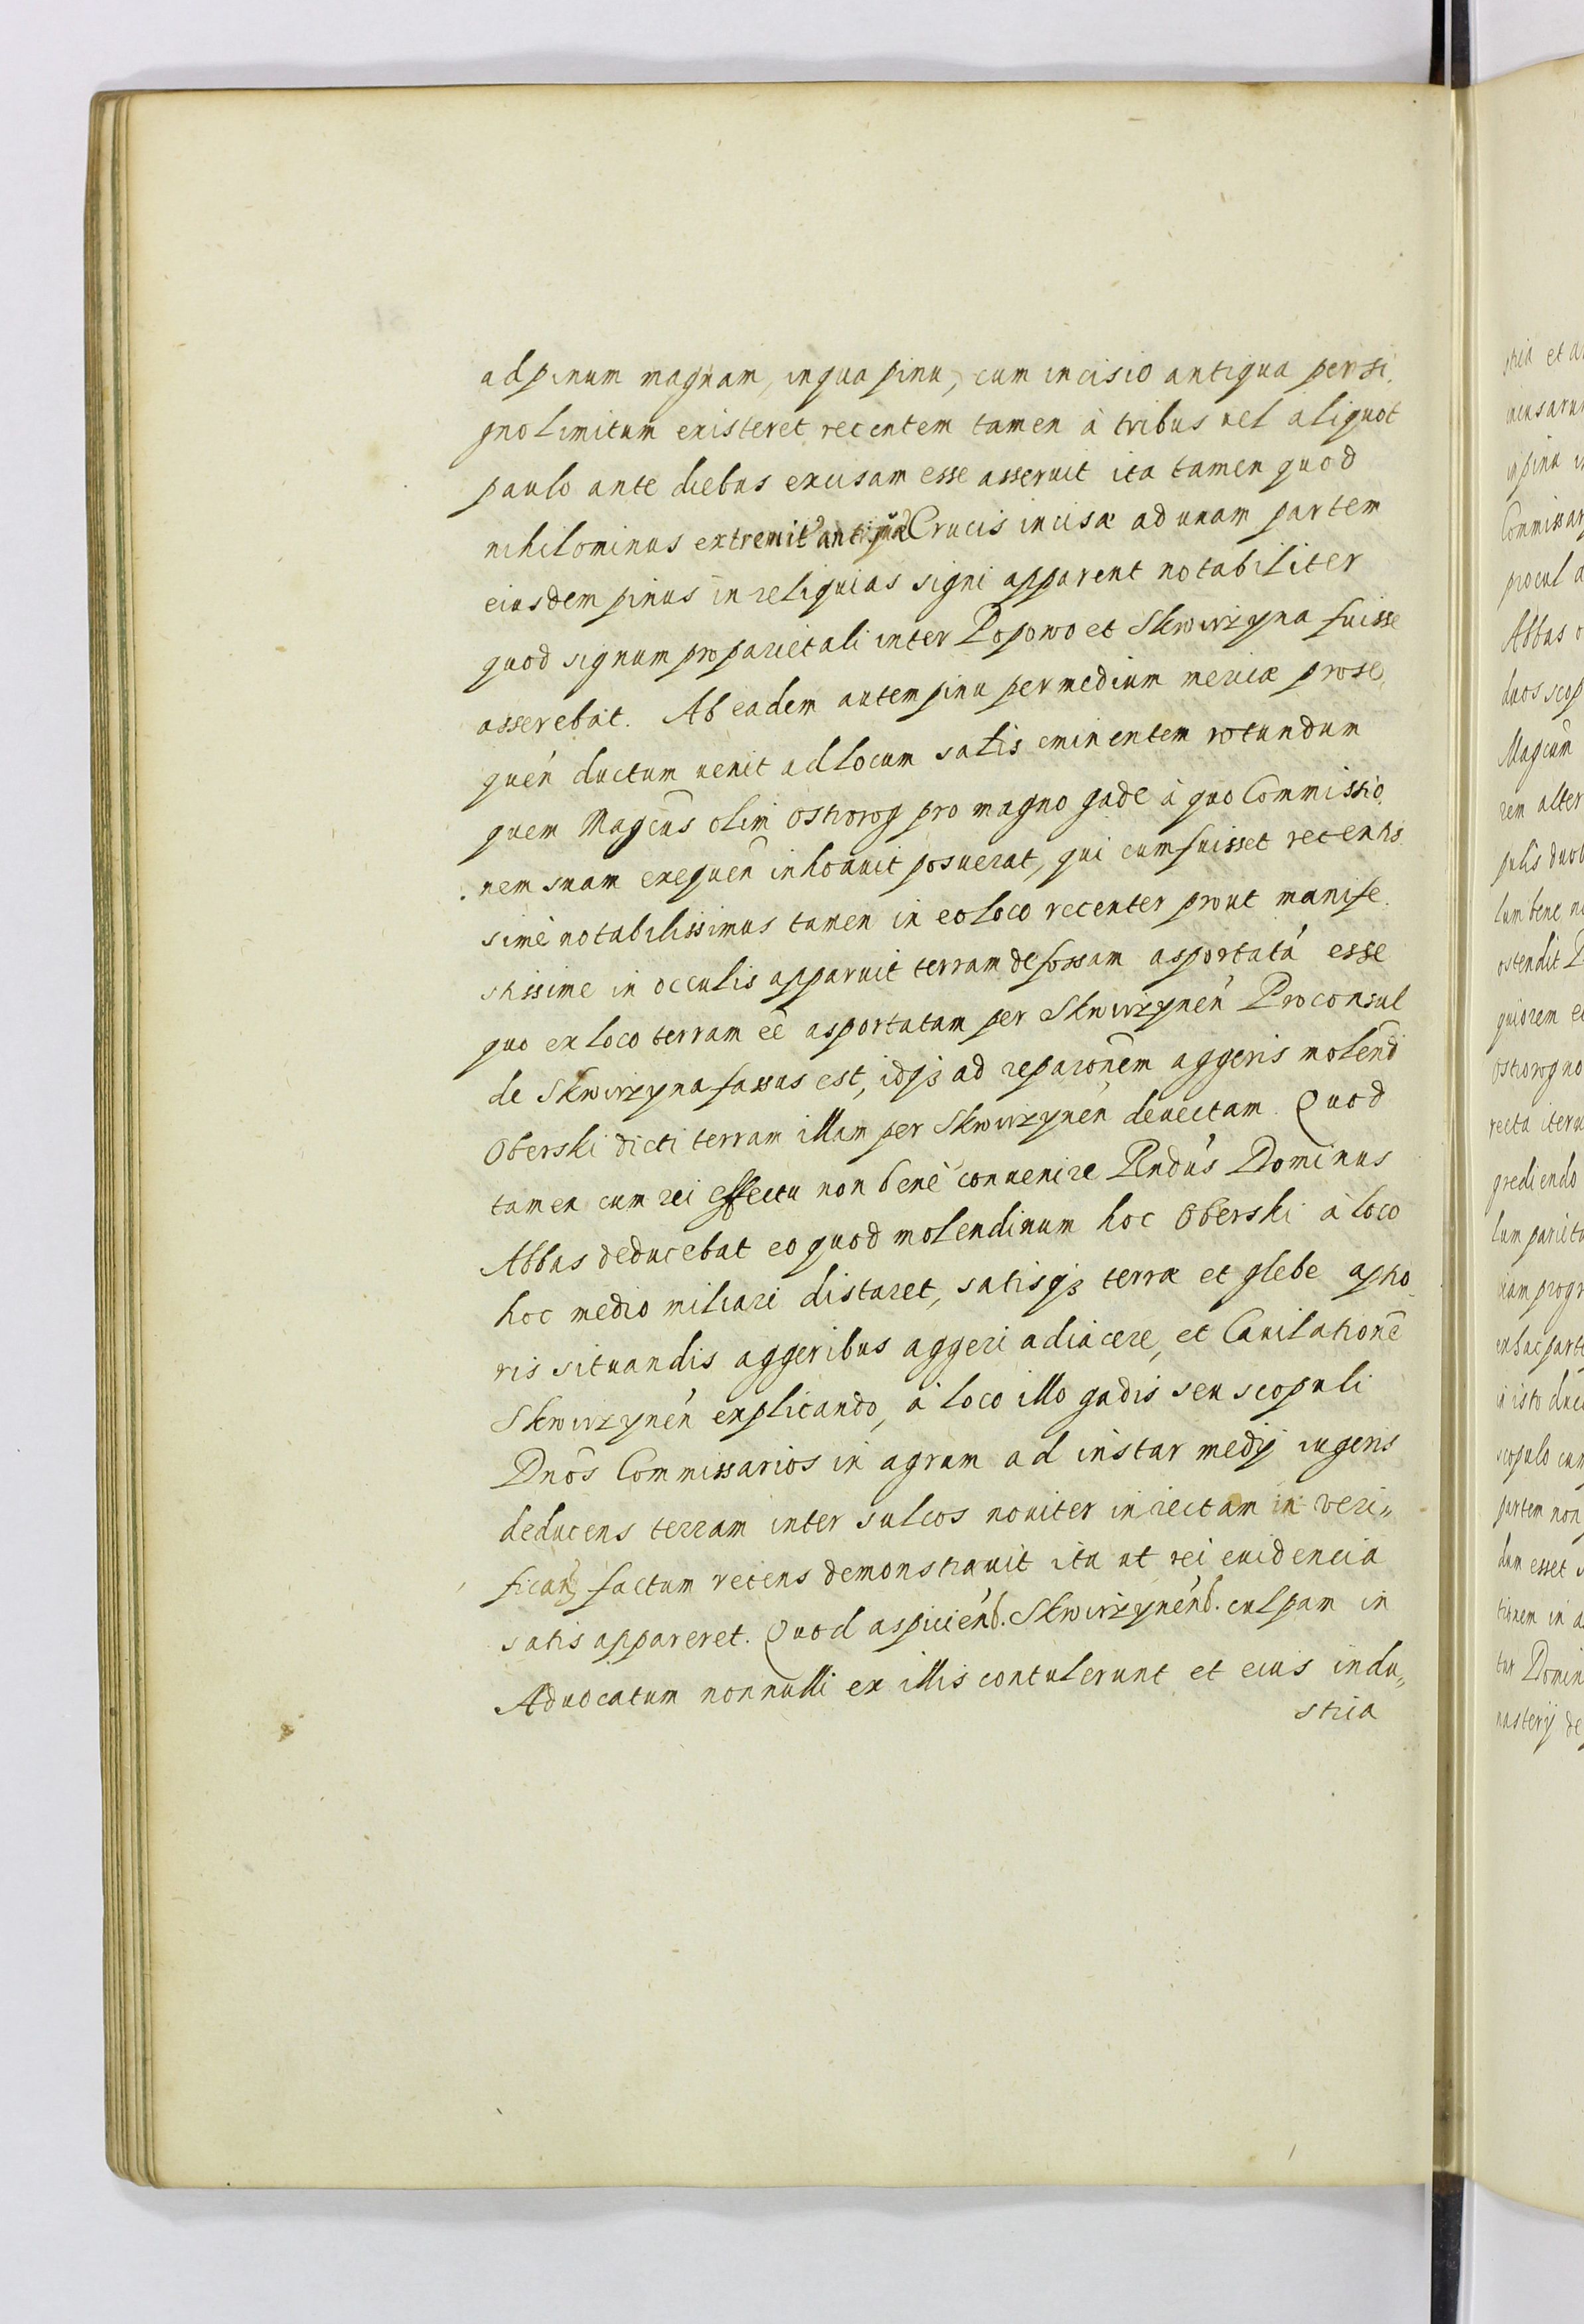 ad pinum magnam, in qua pinu, cum incisio antiqua per si,
gno limitum existeret recentem tamen à tribus vel aliquot
paulo ante diebus excisam esse asseruit ita tamen quod
nihilominus extremit antiqua Crucis incisæ ad unam partem
eiusdem pinus in reliquias signi apparent notabiliter
quod signum pro parietali inter Popowo et Skwirzyna fuisse
asserebat. Ab eadem autem pinu per medium mericæ prose,
quen̄ ductum venit ad locum satis eminentem rotundum
quem Magcūs olim Ostrorog pro magno gade à quo Commissio,
nem suam exequen̄ inhouuit posuerat, qui cum fuisset recentis.
simè notabilissimus tamen in eo loco recenter prout manife.
stissime in occulis apparuit terram defossam asportatá esse
quo ex loco terram eē asportatam per Skwirzynen̄ Proconsul
de Skwirzyna fassus est, idqȝ ad reparonēm aggeris molend̄
Oberski dicti terram illam per Skwirzynen̄ deuectam. Quod
tamen cum rei effectu non benè conuenire Rndūs Dominus
Abbas deducebat eo quod molendinum hoc Oberski à loco
hoc medio miliari distaret, satisqȝ terræ et glebe apto,
ris situandis aggeribus aggeri adiacere, et Cauilationē
Skwirzynen̄ explicando, à loco illo gadis seu scopuli
Dnōs Commissarios in agrum ad instar medij iugeris
deducens terram inter sulcos nouiter iniectam in veri„
fican̄ factum recens demonstrauit ita ut rei euidencia
satis appareret. Quod aspicien̄b. Skwirzynen̄b. culpam in
Aduocatum nonnulli ex illis contulerunt et eius indu„
stria